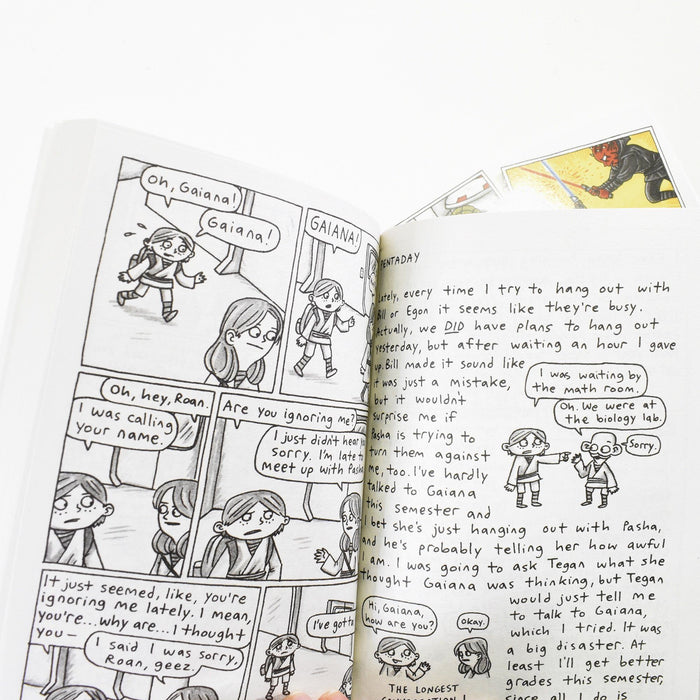 Oh, Gaiana!
Gaiana!
GAIANA!
Oh, hey, Roan.
I was calling
your name.
Are you ignoring me?
I just didn't hear
sorry. I'm late to
meet up with Pasha
It just seemed, like, you're
ignoring me lately. I mean,
you're...why are...I thought
you—
I said I was sorry,
Roan, geez.
I've gotta
PENTADAY
Lately, every time I try to hang out with
Bill or Egon it seems like they're busy.
Actually, we DID have plans to hang out
yesterday, but after waiting an hour I gave
up. Bill made it sound like
it was just a mistake,
but it wouldn't
surprise me if
Pasha is trying to
turn them against
me, too. I've hardly
talked to Gaiana
this semester and
I bet she's just hanging out with Pasha,
and he's probably telling her how awful
I am. I was going to ask Tegan what she
thought Gaiana was thinking, but Tegan
would just tell me
to talk to Gaiana,
which I tried. It was
a big disaster. At
least I'll get better
grades this semester,
since all I do is
I was waiting by
the math room.
Oh. We were at
the biology lab.
Sorry.
Hi, Gaiana,
how are you?
Okay.
THE LONGEST